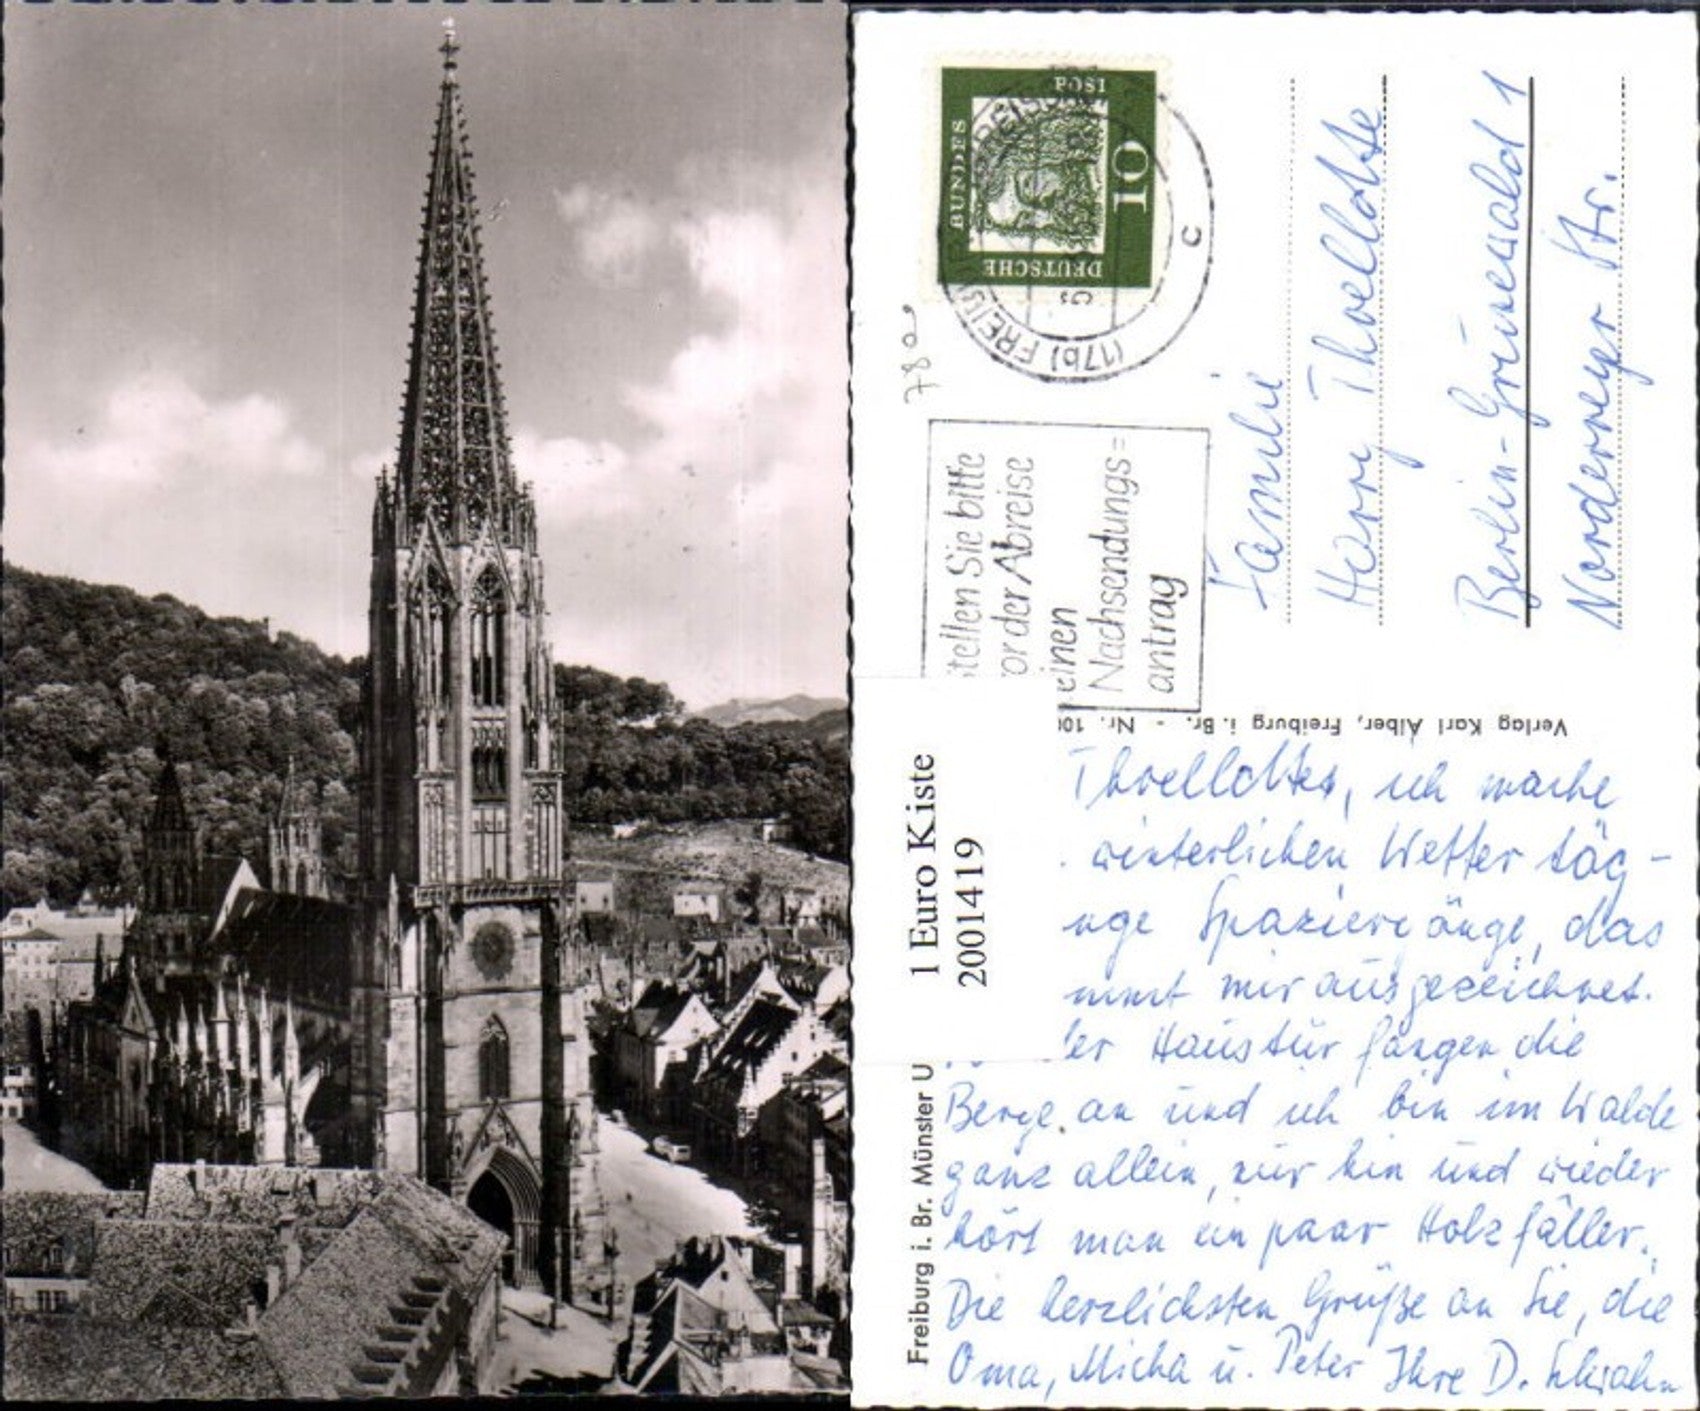 DEUTSCHE
BUNDES
POST
10
(17b) FREIBURG
C
7800
stellen Sie bitte
vor der Abreise
einen
Nachsendungs=
antrag
Familie
Harry Thoellotte
Berlin-Grunewald 1
Norderneyer Str.
Verlag Karl Alber, Freiburg i. Br. - Nr. 10
1 Euro Kiste
2001419
Freiburg i. Br. Münster U
Thoellottes, ich mache
winterlichen Wetter täg-
nge Spaziergänge, das
mmt mir ausgezeichnet.
der Haustür fangen die
Berge an und ich bin im Walde
ganz allein, nur hin und wieder
hört man ein paar Holzfäller.
Die herzlichsten Grüße an Sie, die
Oma, Micha u. Peter Ihre D. Schwahn